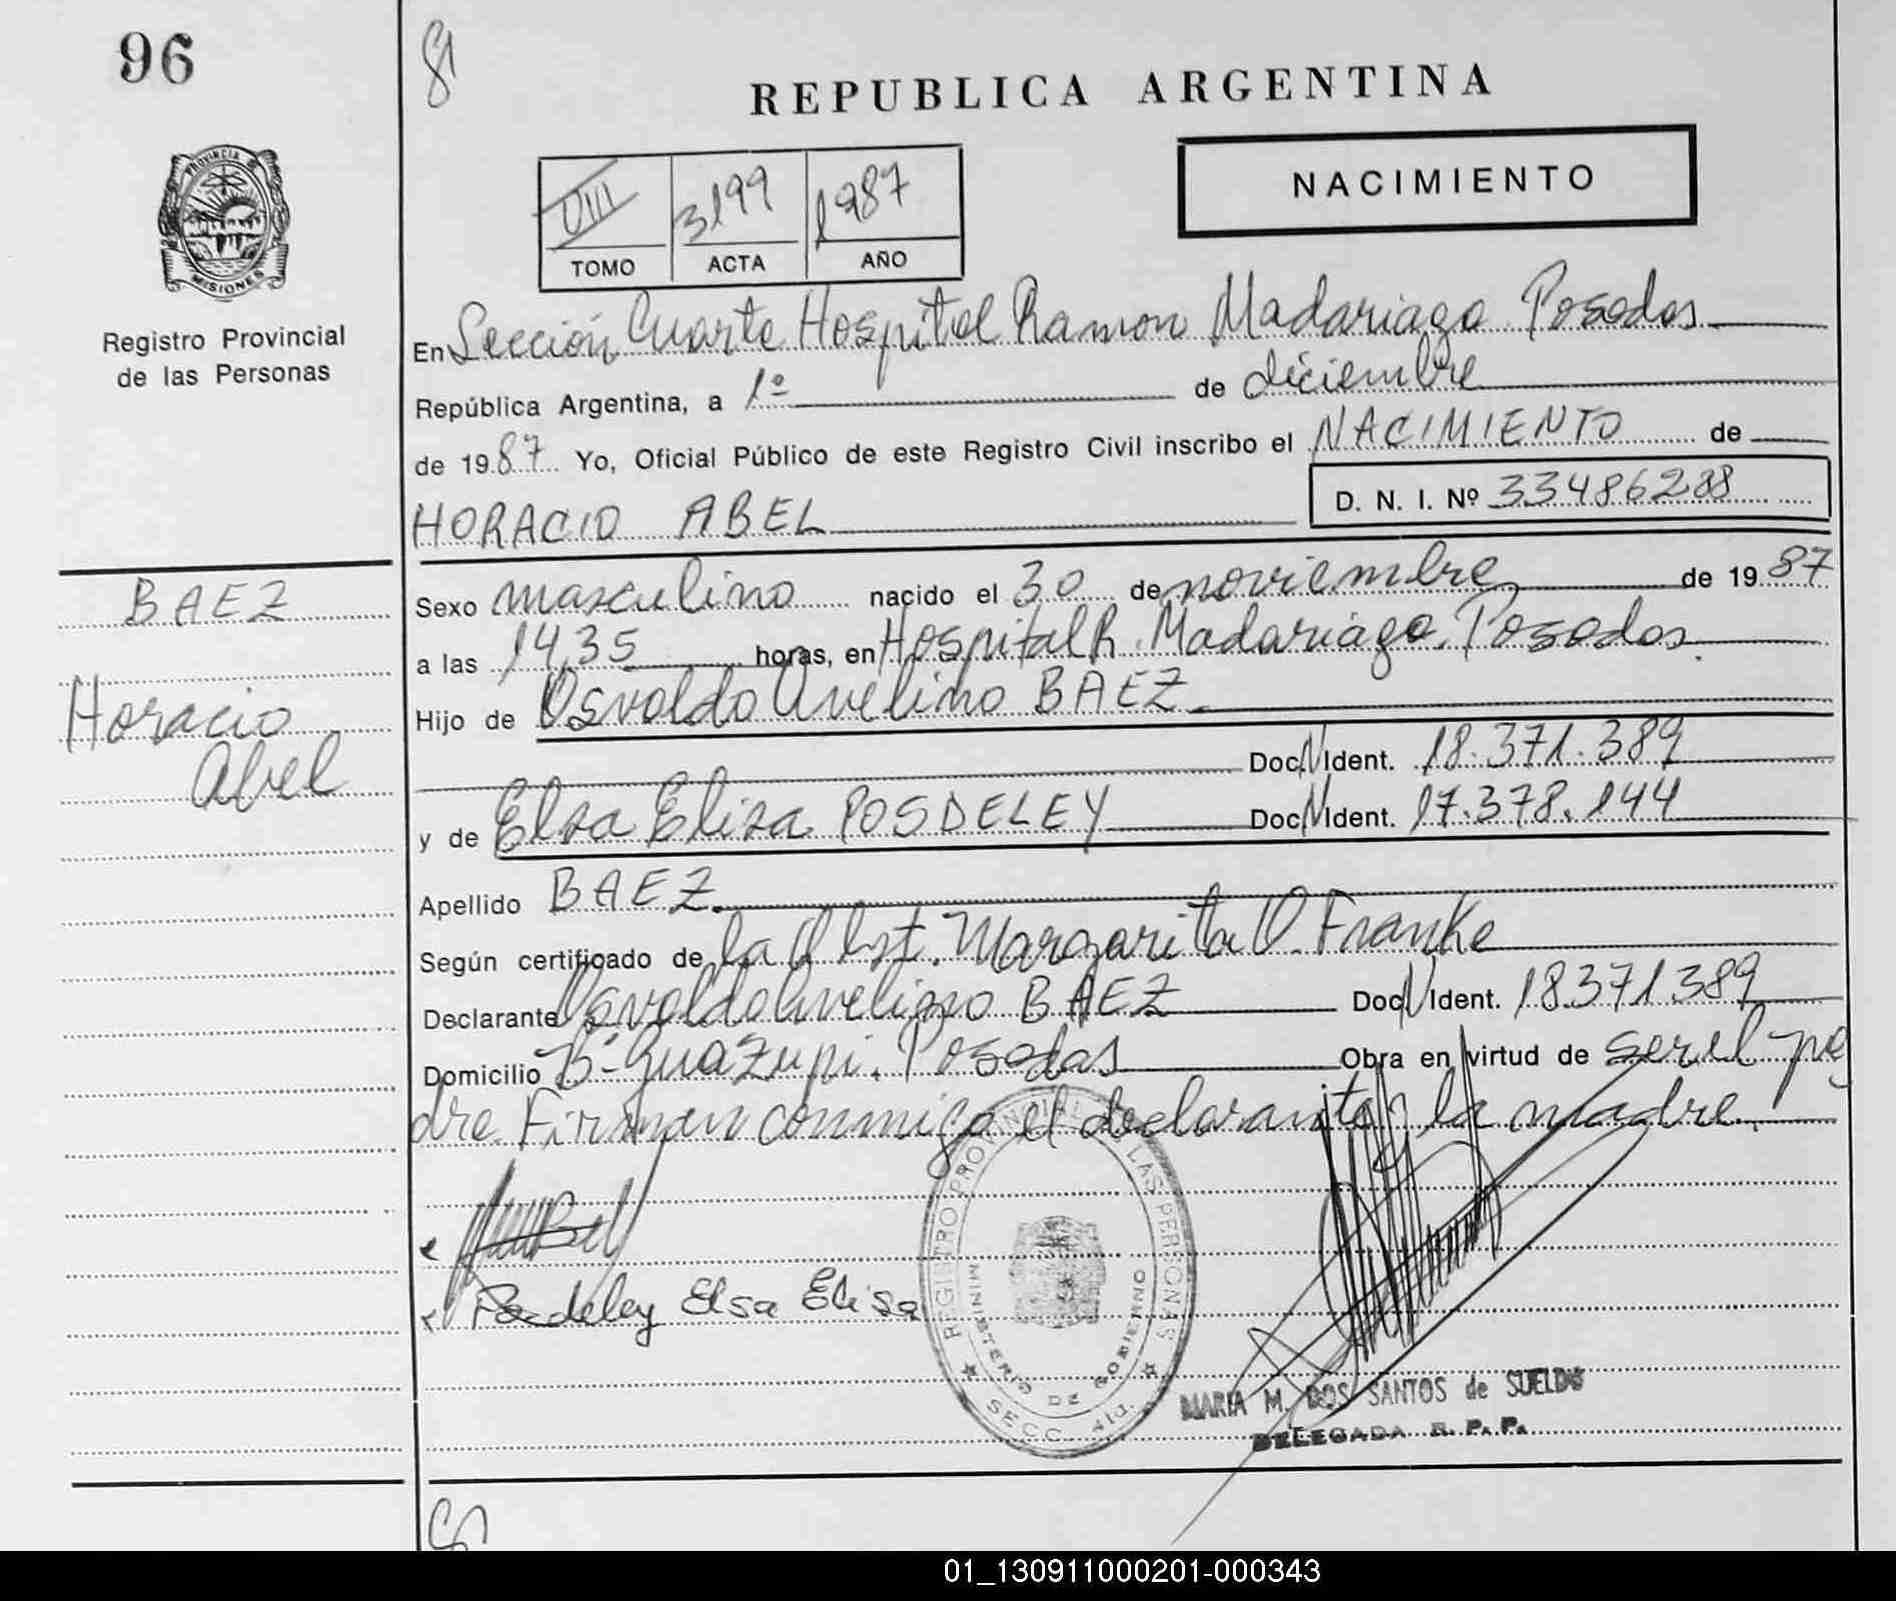 96
REPUBLICA ARGENTINA
NACIMIENTO
PROVINCIA DE MISIONES
VIII 3199 1987
TOMO ACTA AÑO
Registro Provincial
de las Personas
En Sección Cuarta Hospital Ramon Madariaga Posadas
República Argentina, a 1º de diciembre
de 1987 Yo, Oficial Público de este Registro Civil inscribo el NACIMIENTO de
HORACIO ABEL D. N. I. Nº 33486288
BAEZ
Horacio
Abel
Sexo masculino nacido el 30 de noviembre de 1987
a las 14,35 horas, en Hospital R. Madariaga. Posadas.
Hijo de Osvaldo Avelino BAEZ
Doc. N Ident. 18.371.389
y de Elsa Elisa POSDELEY Doc. N Ident. 17.378.144
Apellido BAEZ.
Según certificado de la Obst. Margarita O. Franke
Declarante Osvaldo Avelino BAEZ Doc. N Ident. 18371389
Domicilio Bº Guazupi. Posadas Obra en virtud de ser el pa
dre. Firman conmigo el declarante y la madre.
Posdeley Elsa Elisa
REGISTRO PROVINCIAL DE LAS PERSONAS
MINISTERIO DE GOBIERNO
SECC. 4ta.
MARIA M. DOS SANTOS de SUELDO
DELEGADA R. P. P.
01_130911000201-000343